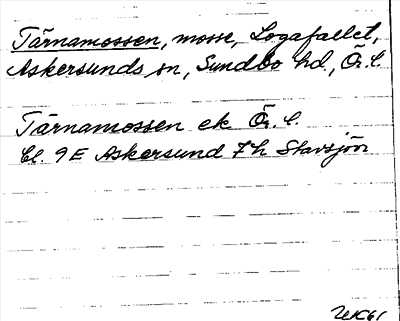 Tärnamossen, mosse, Logafallet,
Askersunds sn, Sundbo hd, Ör. l.
Tärnamossen ek. Ör. l.
bl. 9E Askersund 7h Stavsjön